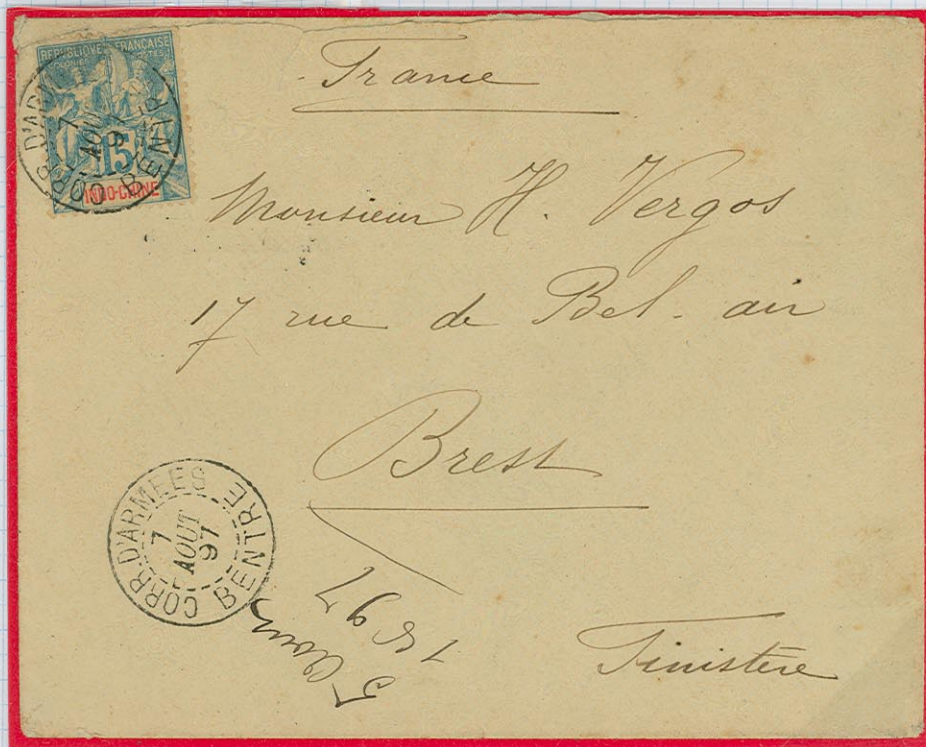 REPUBLIQUE FRANÇAISE
COLONIES POSTES
15
INDO-CHINE
CORR. D'ARM
7
AOUT
97
BENTRE
France
Monsieur H. Vergos
17 rue de Bel-air
Brest
Finistère
CORR. D'ARMEES
7
AOUT
97
BENTRE
5 Aout
1897